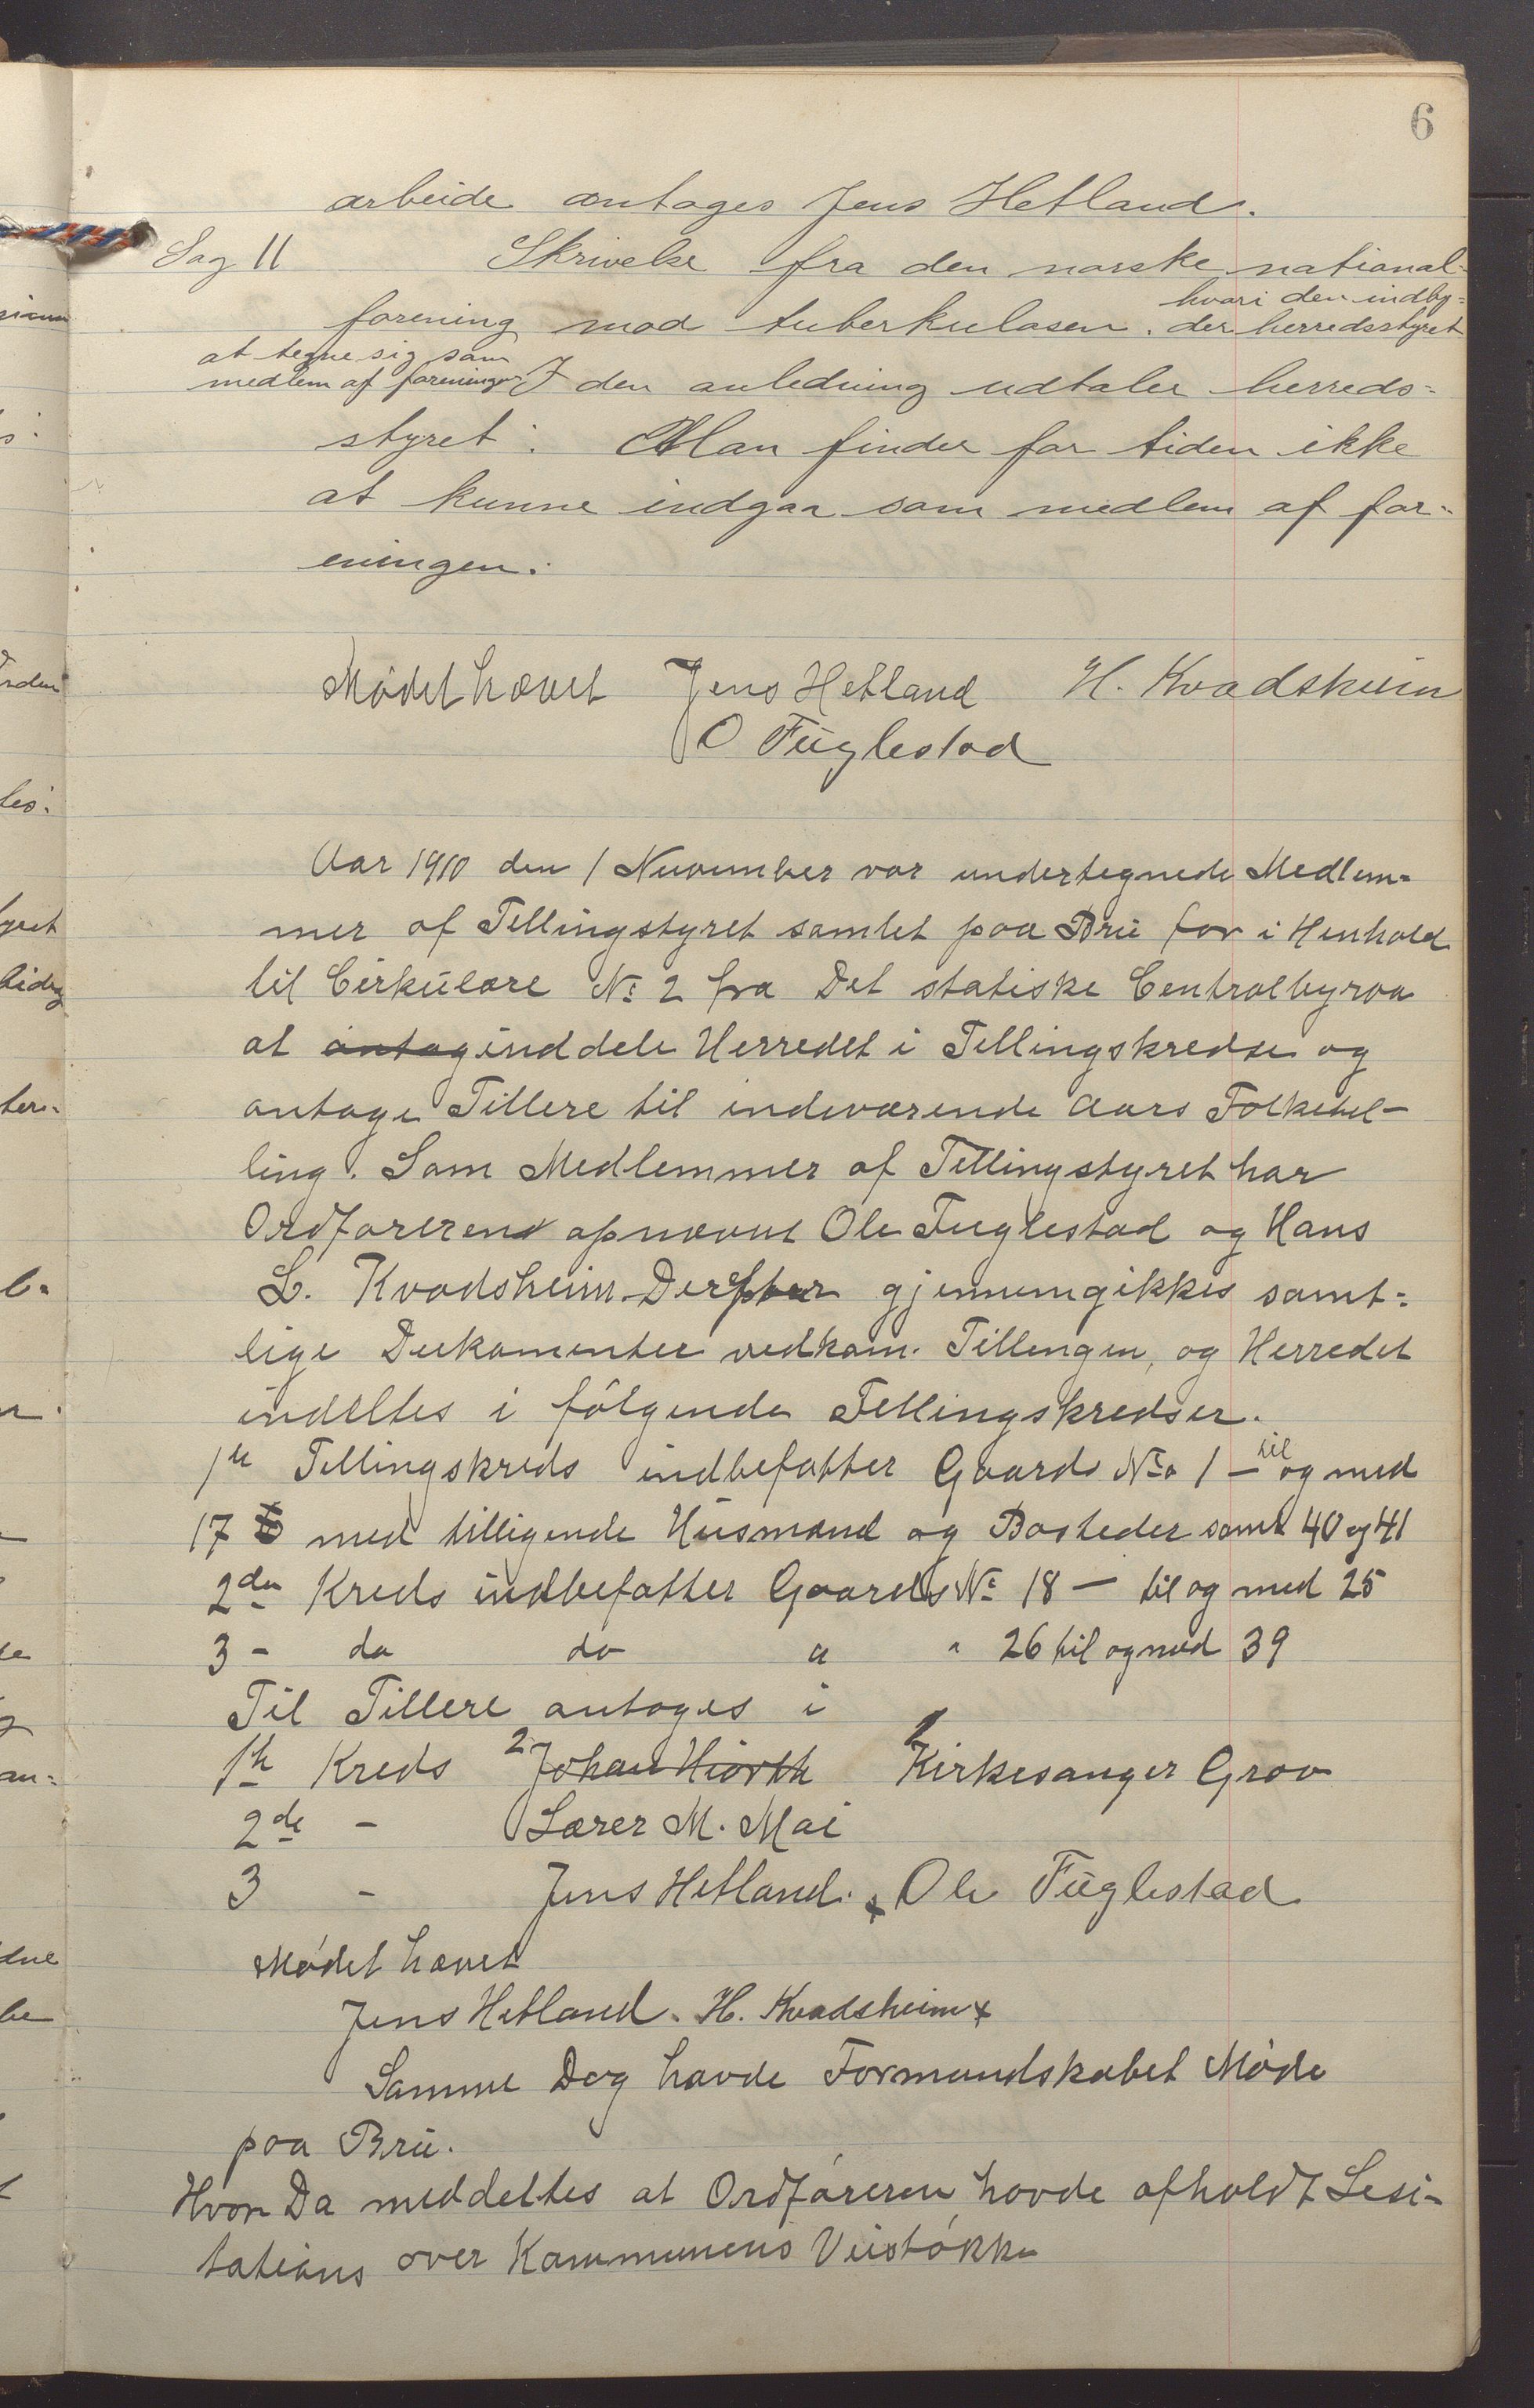 6
arbeide antages Jens Hetland.
Sag 11 Skrivelse fra den norske national-
forening mod tuberkulosen. hvori den indby-
der herredsstyret
at tegne sig som
medlem af foreningen I den anledning udtaler herreds-
styret: Man finder for tiden ikke
at kunne indgaa som medlem af for-
eningen.
Mødet hævet Jens Hetland H. Kvadsheim
O Fuglestad
Aar 1910 den 1 November var undertegnede Medlem-
mer af Tellingstyret samlet paa Bru for i Henhold
til Cirkulære No 2 fra Det statiske Centralbyraa
at antag inddele Herredet i Tellingskredse og
antage Tillere til indeværende Aars Folketel-
ling. Som Medlemmer af Tellingstyret har
Ordføreren opnævnt Ole Fuglestad og Hans
L. Kvadsheim. Derefter gjennemgikkes samt-
lige Dukomenter vedkom. Tellingen, og Herredet
inddeltes i følgende Tellingskredser.
1ste Tellingskreds indbefatter Gaards No 1 – til og med
17 med tilligende Husmænd og Bosteder samt 40 og 41
2den Kreds indbefatter Gaards No 18 – til og med 25
3 - do do " " 26 til og med 39
Til Tillere antoges i
1ste Kreds 2 Johan Hiorth 1 Kirkesanger Grov
2de - Lærer M. Mai
3 - Jens Hetland. Ole Fuglestad
Mødet hævet
Jens Hetland. H. Kvadsheim
Samme Dag havde Formandskabet Møde
paa Bru.
Hvor Da meddeltes at Ordføreren havde afholdt Lesi-
tations over Kommunens Veistøkke